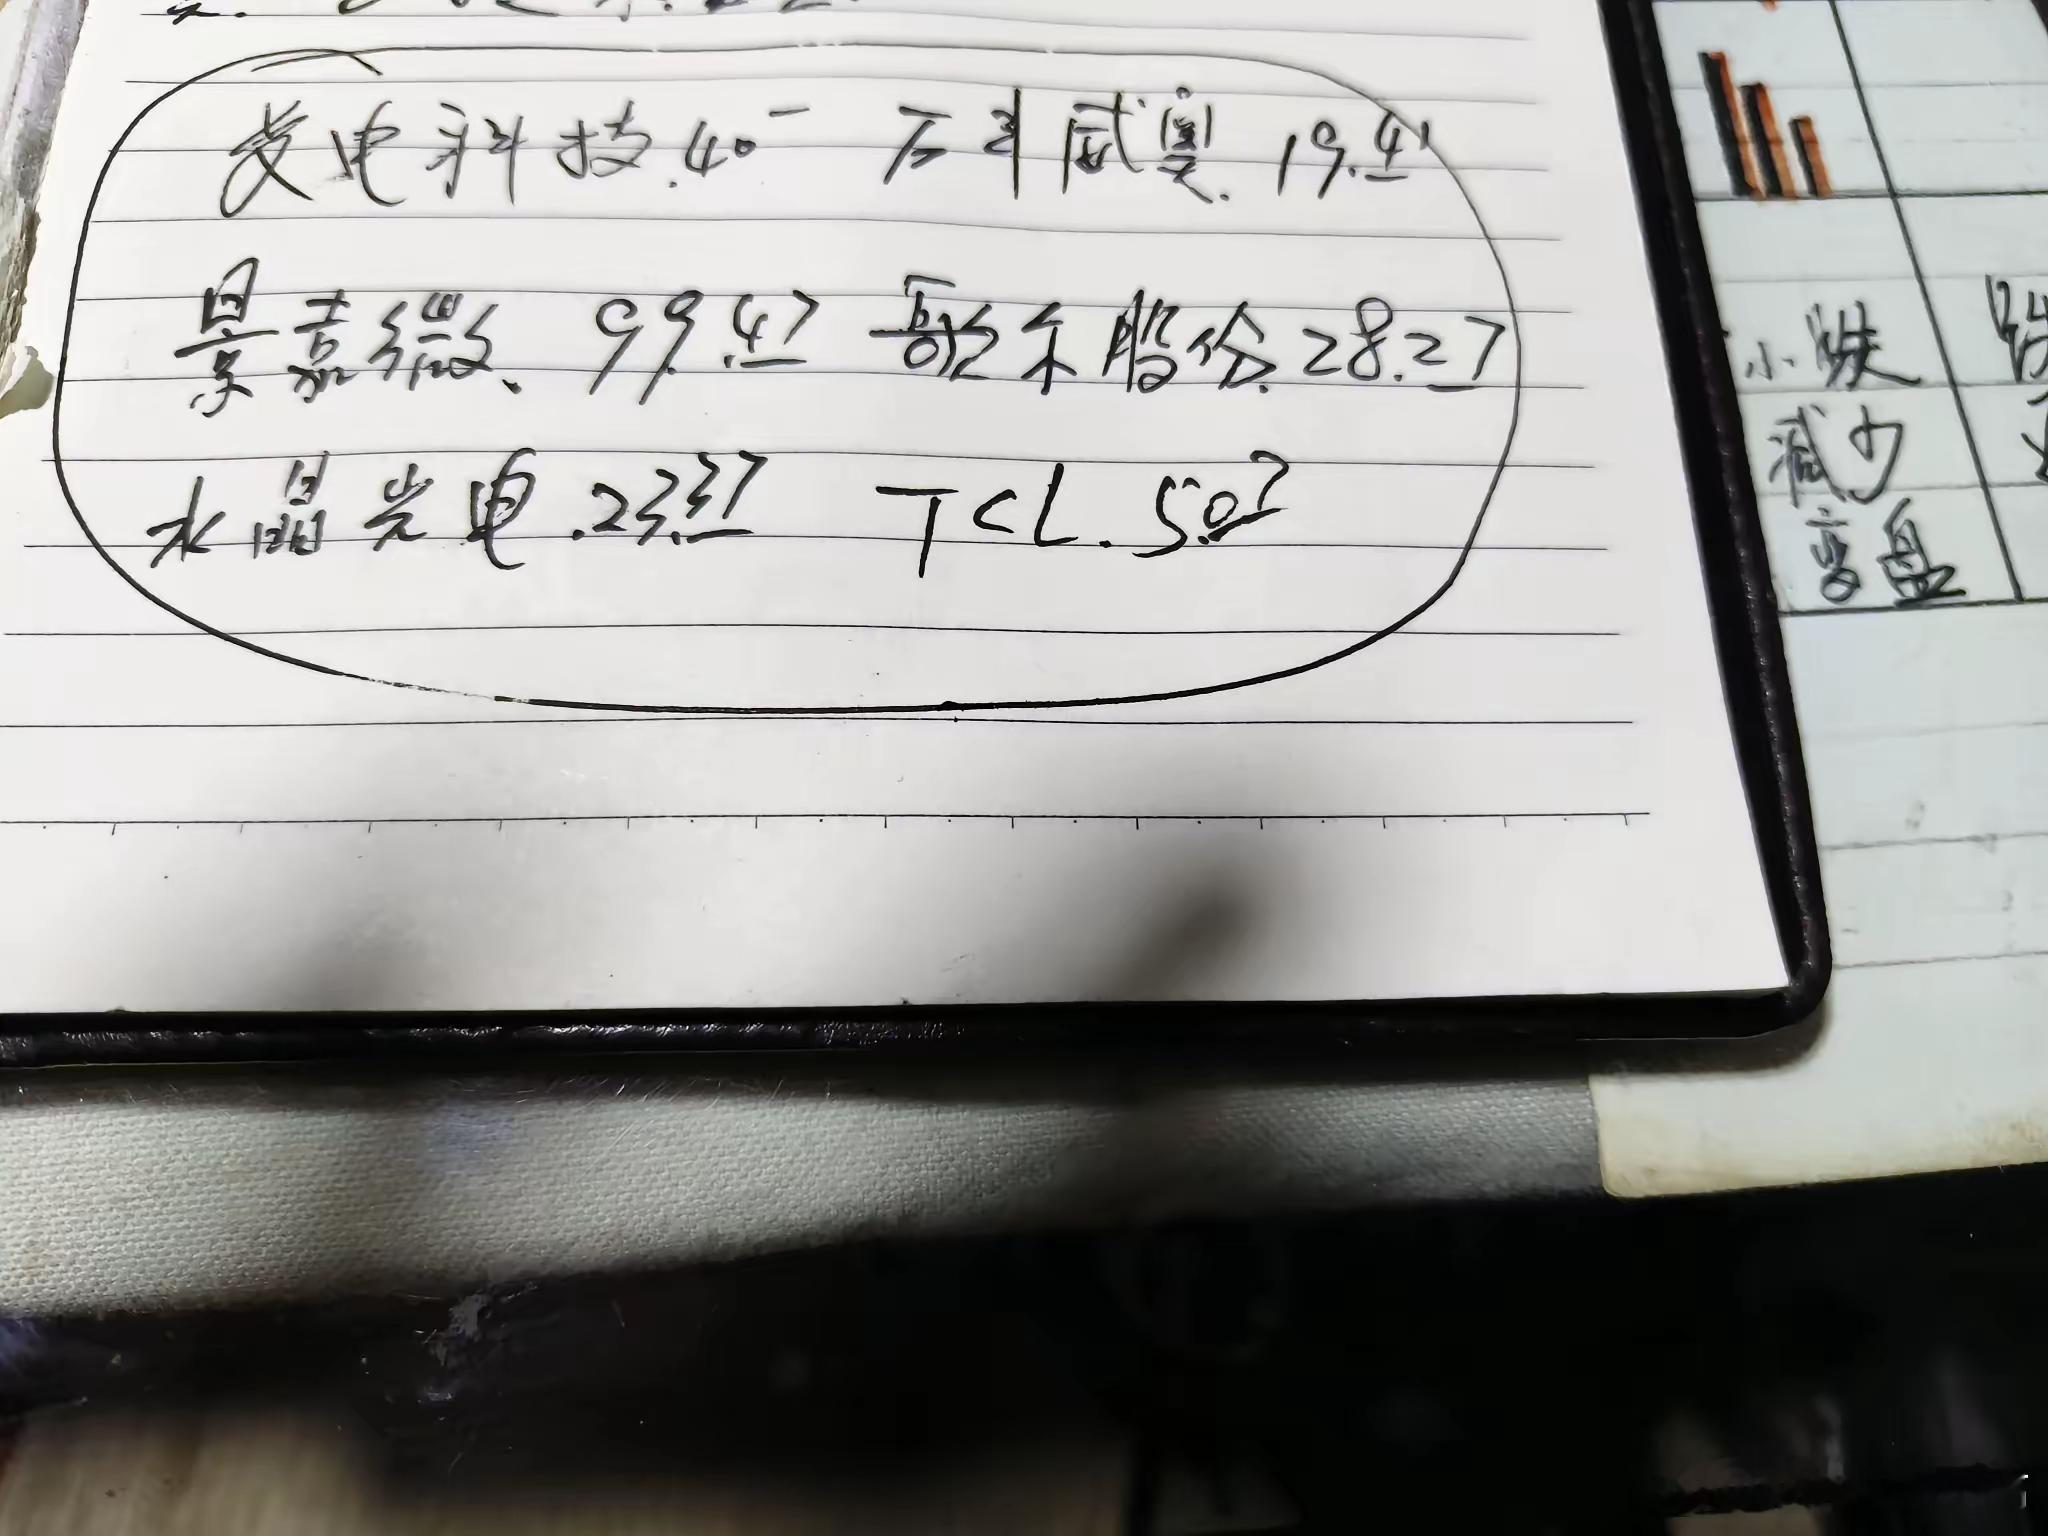 电科技.40
威奥.19.41
景嘉微、99.47 歌尔股份.28.27
水晶光电.23.37 TCL.5.07
小跌
减少
变盘